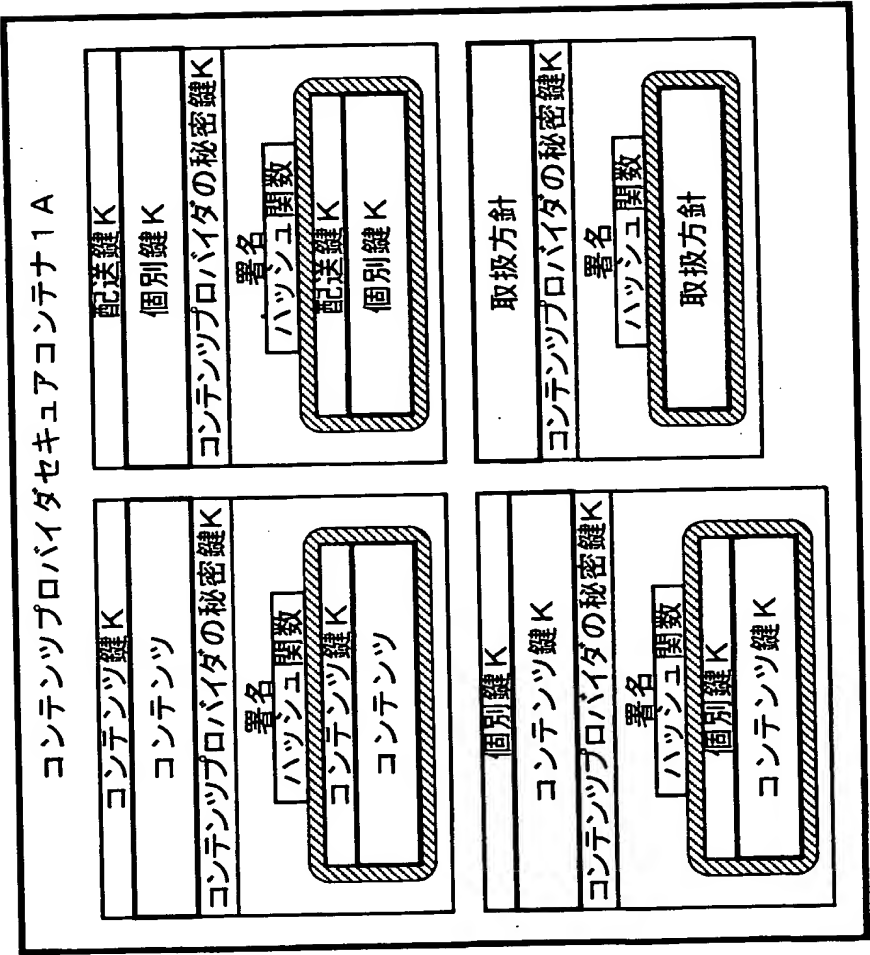 コンテンツプロバイダセキュアコンテナ1A
コンテンツ鍵K
コンテンツ
コンテンツプロバイダの秘密鍵K
署名
ハッシュ関数
コンテンツ鍵K
コンテンツ
配送鍵K
個別鍵K
コンテンツプロバイダの秘密鍵K
署名
ハッシュ関数
配送鍵K
個別鍵K
個別鍵K
コンテンツ鍵K
コンテンツプロバイダの秘密鍵K
署名
ハッシュ関数
個別鍵K
コンテンツ鍵K
取扱方針
コンテンツプロバイダの秘密鍵K
署名
ハッシュ関数
取扱方針